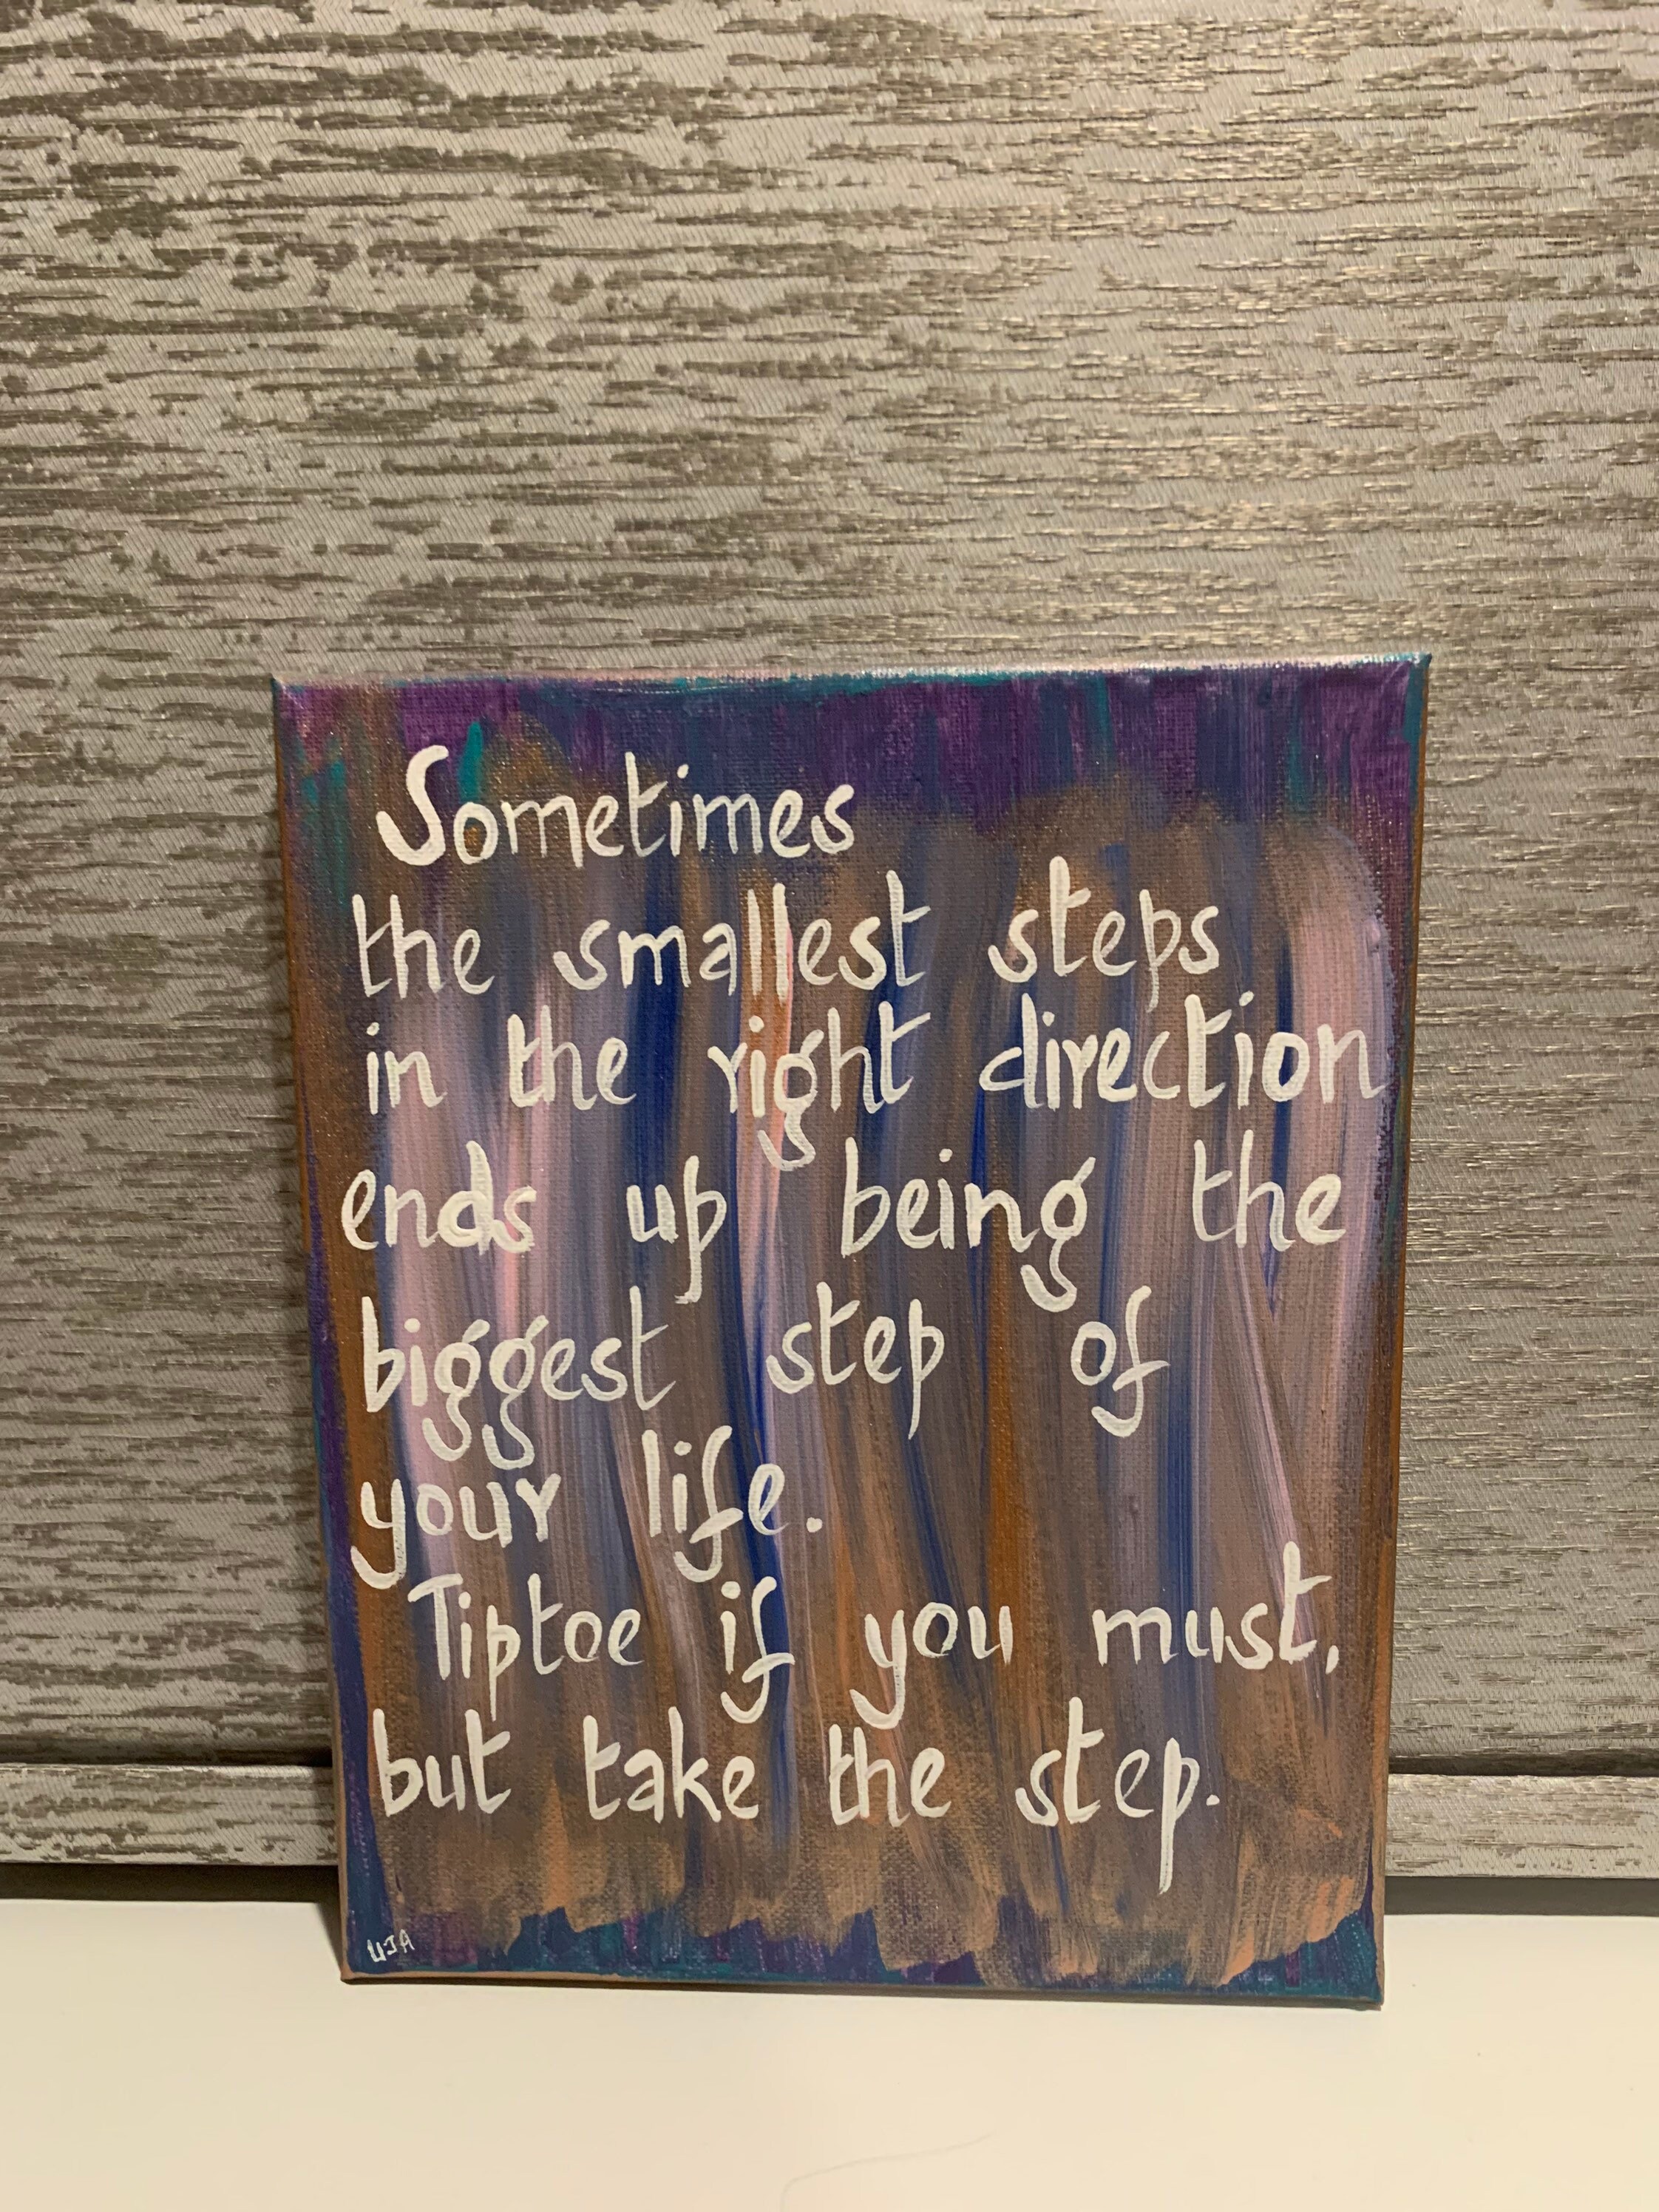 Sometimes
the smallest steps
in the right direction
ends up being the
biggest step of
your life.
Tiptoe if you must,
but take the step.
UJA